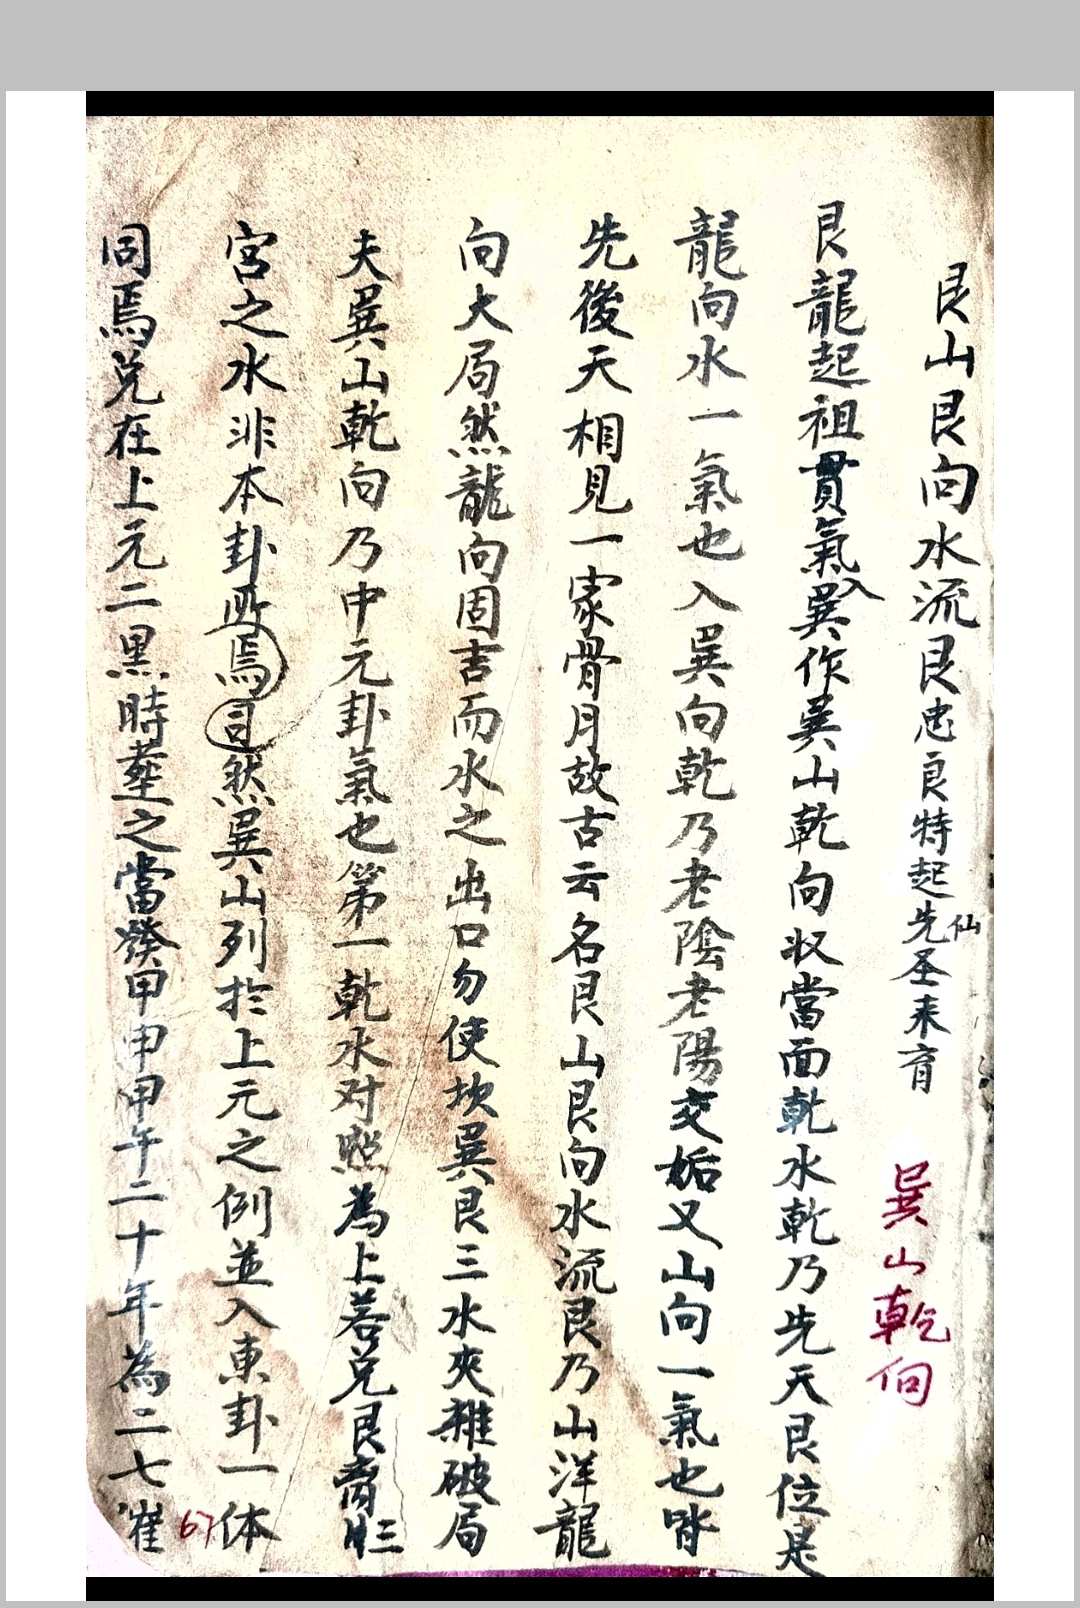 艮山艮向水流艮忠良特起先仙圣来育
巽山乾向
艮龍起祖貫氣入巽作巽山乾向収當面乾水乾乃先天艮位是
龍向水一氣也入巽向乾乃老陰老陽交姤又山向一氣也皆
先後天相見一家骨月故古云名艮山艮向水流艮乃山洋龍
向大局然龍向固吉而水之出口勿使坎巽艮三水夾雜破局
夫巽山乾向乃中元卦氣也第一乾水对照為上若兑艮
三
宮之水非本卦匹焉司然巽山列於上元之例並入東卦一体
同焉兑在上元二黑時塟之當發甲申甲午二十年為二七
67